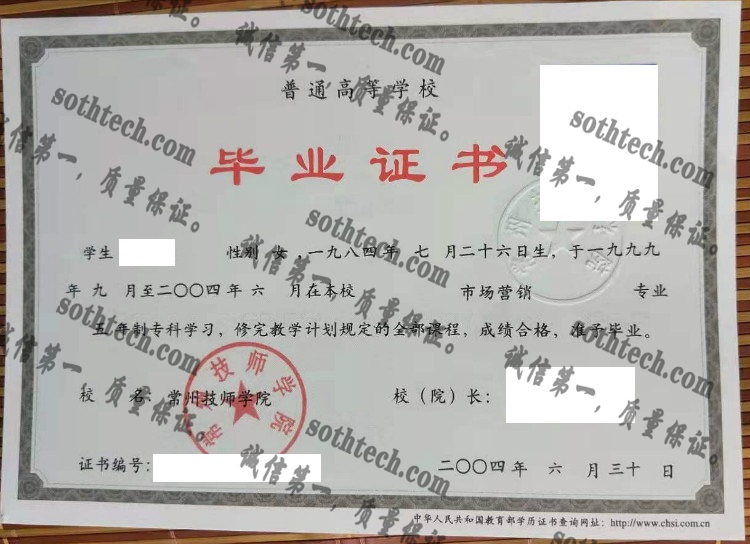 普通高等学校
毕业证书
学生 性别 女 ,一九八四年 七 月二十六日生，于一九九九
年 九 月至二〇〇四年 六 月在本校 市场营销 专业
五 年制专科学习，修完教学计划规定的全部课程，成绩合格，准予毕业。
校 名：常州技师学院 校（院）长：
证书编号： 二〇〇四年 六 月三十 日
中华人民共和国教育部学历证书查询网址：http://www.chsi.com.cn
常州技师学院
sothtech.com
诚信第一，质量保证。
sothtech.com
诚信第一，质量保证。
sothtech.com
诚信第一，质量保证。
sothtech.com
诚信第一，质量保证。
sothtech.com
诚信第一，质量保证。
sothtech.com
诚信第一，质量保证。
sothtech.com
诚信第一，质量保证。
sothtech.com
诚信第一，质量保证。